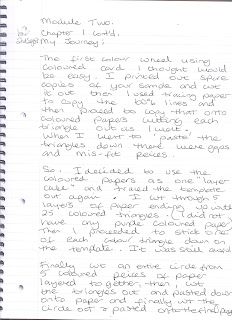 Module Two.
Chapter 1 Cont'd.
My Journey:
The first colour wheel using
coloured card I thought would
be easy. I printed out spare
copies of your sample and cut
it out then I used tracing paper
to copy the lines and
then proceed to copy that onto
coloured papers cutting each
triangle out as I went.
When I went to 'paste' the
triangles down there were gaps
and mis-fit pieces.
So, I decided to use the
coloured papers as one "layer
cake" and traced the template
out again. I cut through 5
layers of paper ending up with
25 coloured triangles. (I did not
have any purple coloured paper)
Then I proceeded to stick one
of each colour triangle down on
the template. It was still
Finally cut an entire circle from
5 coloured pieces of paper
layered together, then I cut
the triangles out and pasted down
onto paper and finally cut the
circle out & pasted onto the final page